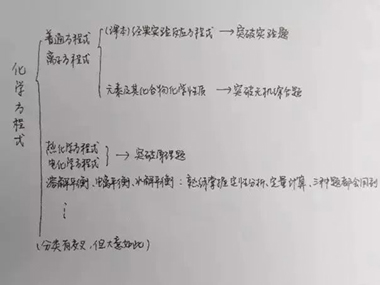 化学方程式
普通方程式
离子方程式
(课本)经典实验反应方程式 → 突破实验题
元素及其化合物化学性质 → 突破无机综合题
热化学方程式
电化学方程式
→ 突破原理题
溶解平衡、电离平衡、水解平衡：熟练掌握定性分析、定量计算、三种题都会用到
(分类有交叉，但大意如此)